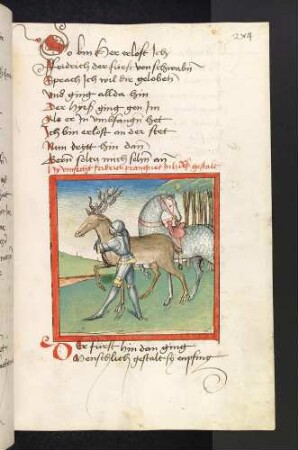 244
So bin her erlost Ich
Fridrich der fürst von schwabn
Sprach Ich wil dir geloben
Vnd ging allda hin
Der hyrß ging gen Im
Als er In vmbfangn het
Ich bin erlost an der stet
Nun drytt hin dan
sehn an
Hy vmfacht fridrich gestalt
Der fürst hin dan ging
Menschlich gestalt sy empfing